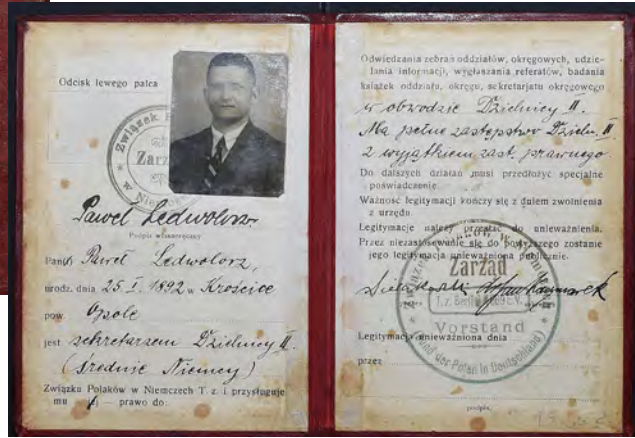 Odcisk lewego palca
Związek
Zarz
w Niem
Paweł Ledwolorz
Podpis własnoręczny
Pan(i) Paweł Ledwolorz,
urodz. dnia 25. I. 1892 w Krośnice
pow. Opole
jest sekretarzem Dzielnicy II.
(Średnie Niemcy)
Związku Polaków w Niemczech T. z. i przysługuje
mu (jej) — prawo do:
Odwiedzania zebrań oddziałów, okręgowych, udzie-
lania informacji, wygłaszania referatów, badania
książek oddziału, okręgu, sekretarjatu okręgowego
w obwodzie Dzielnicy II.
Ma pełne zastępstwo Dzieln. II
z wyjątkiem zast. prawnego.
Do dalszych działań musi przedłożyć specjalne
poświadczenie.
Ważność legitymacji kończy się z dniem zwolnienia
z urzędu.
Legitymacje należy przesłać do unieważnienia.
Przez niezastosowanie się do powyższego zostanie
jego legitymacja unieważniona publicznie.
Związek Polaków w Niemczech
Zarząd
T. z. Berlin E.V.
Vorstand
(Bund der Polen in Deutschland)
Legitymacja unieważniona dnia
przez
podpis.